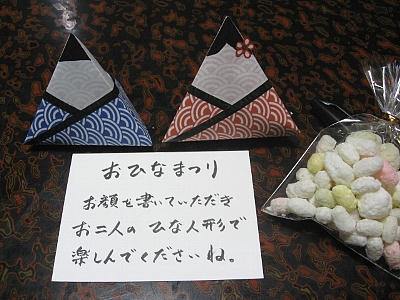 おひなまつり
お顔を書いていただき
お二人の ひな人形で
楽しんでくださいね。